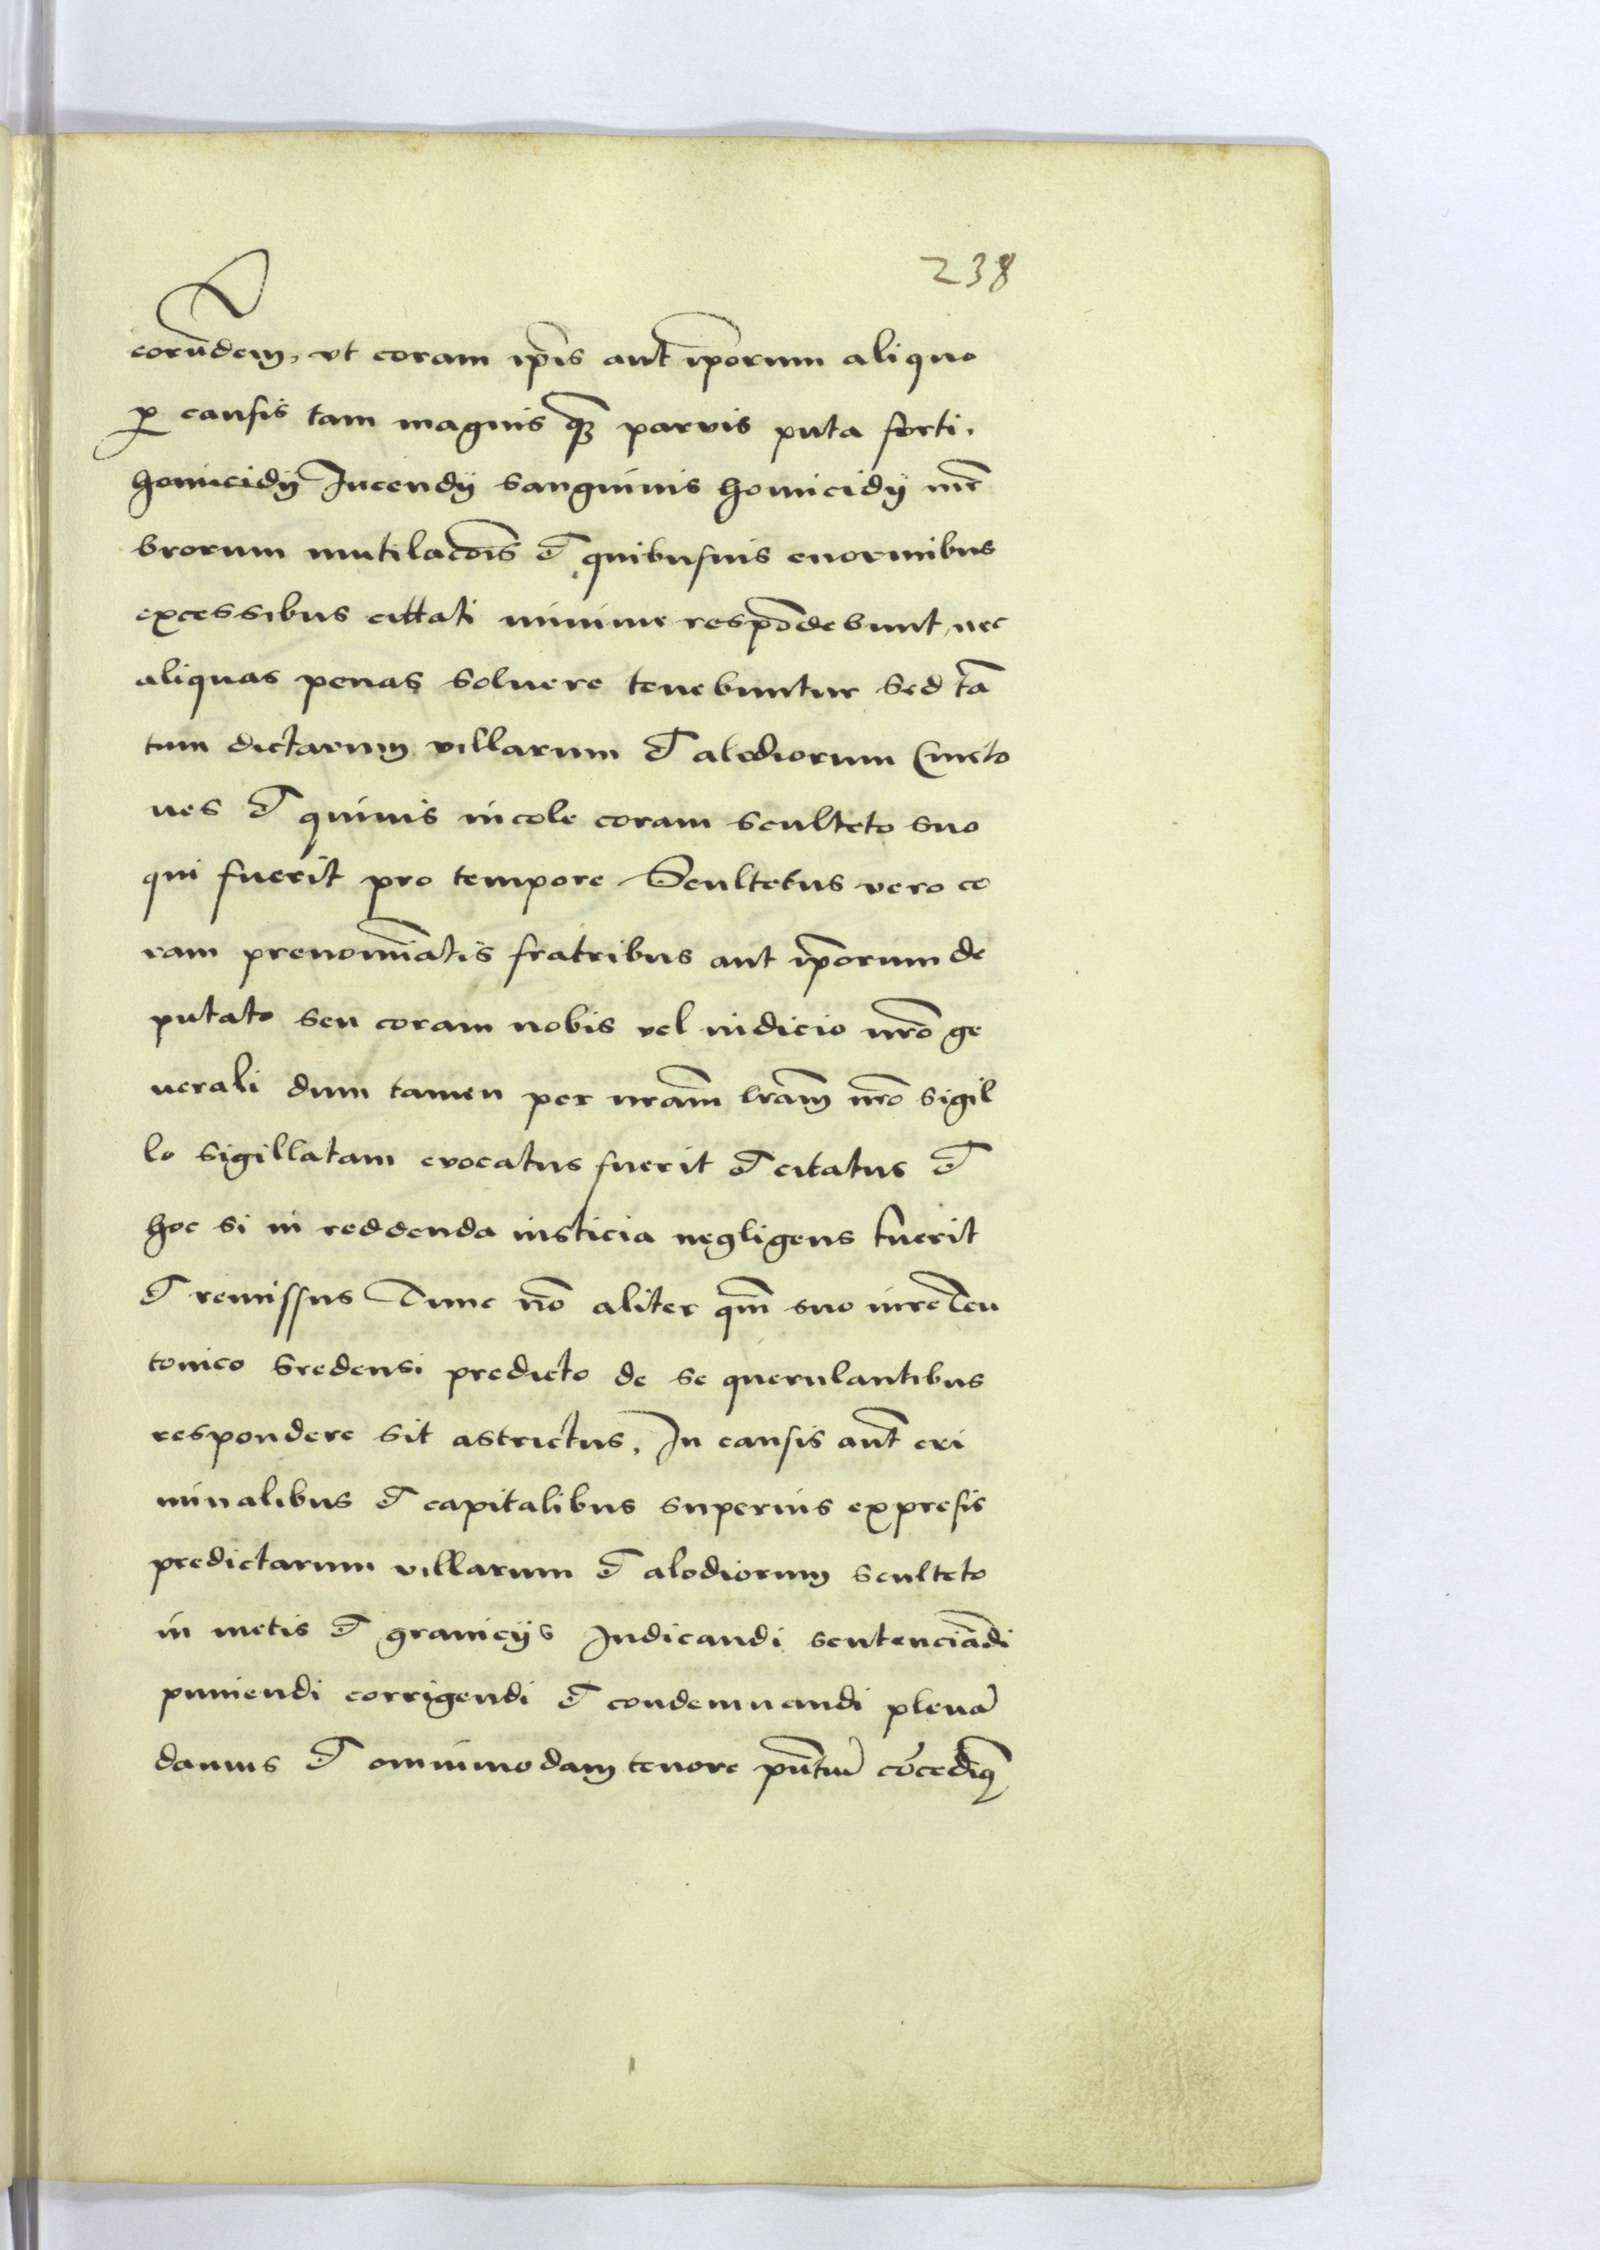 238
eorūdem, vt coram ip̄is aut ip̄orum aliquo
ꝓ causis tam magnis qꝫ parvis puta forti,
homicidÿ Incendÿ sanguinis homicidÿ mē
brorum mutilacōis et quibusuis enormibus
excessibus cittati minime respōdebunt, nec
aliquas penas soluere tenebuntur sed tā
tum dictarum villarum et alodiorum Cmeto
nes et quiuis incole coram sculteto suo
qui fuerit pro tempore Scultetus vero co
ram prenomīatis fratribus aut ip̄orum de
putato seu coram nobis vel iudicio nr̄o ge
nerali dum tamen per nrām lrām nr̄o sigil
lo sigillatam evocatus fuerit et citatus et
hoc si in reddenda iusticia negligens fuerit
et remissus Tunc nō aliter qm̄ suo iure Teu
tonico Sredensi predicto de se querulantibus
respondere sit astrictus. In causis aūt cri
minalibus et capitalibus superius expresis
predictarum villarum et alodiorum sculteto
in metis et granicÿs Iudicandi sentenciādi
puniendi corrigendi et condemnandi plenā
damus et omnimodam tenore pn̄tiū cōcedimꝰ